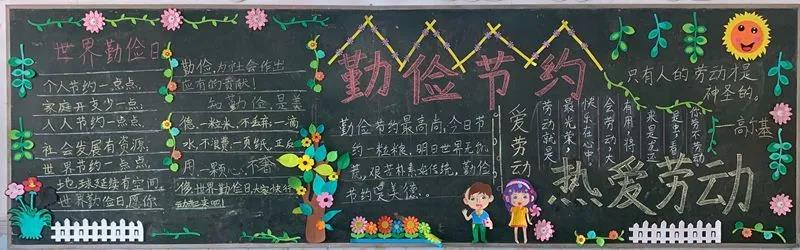 世界勤俭日
个人节约一点点,
家庭开支少一点,
人人节约一点点,
社会发展有资源,
世界节约一点点,
地球延续有空间。
世界勤俭日愿你
勤俭,为社会作出
应有的贡献!
知勤俭,是美
德,一粒米,不丢弃,一滴
水,不浪费,一页纸,正反
用,一颗心,不奢
侈,世界勤俭日,大家快行
动起来吧!
勤俭节约
勤俭节约最高尚,今日节
约一粒粮,明日世界无饥
荒,艰苦朴素好传统,勤俭
节约是美德。
爱劳动
劳动就是
最光荣,
快乐在心中,
会劳动大
有用,得
来
是虫,看
你劳不劳动
只有人的劳动才是
神圣的。
——高尔基
热爱劳动